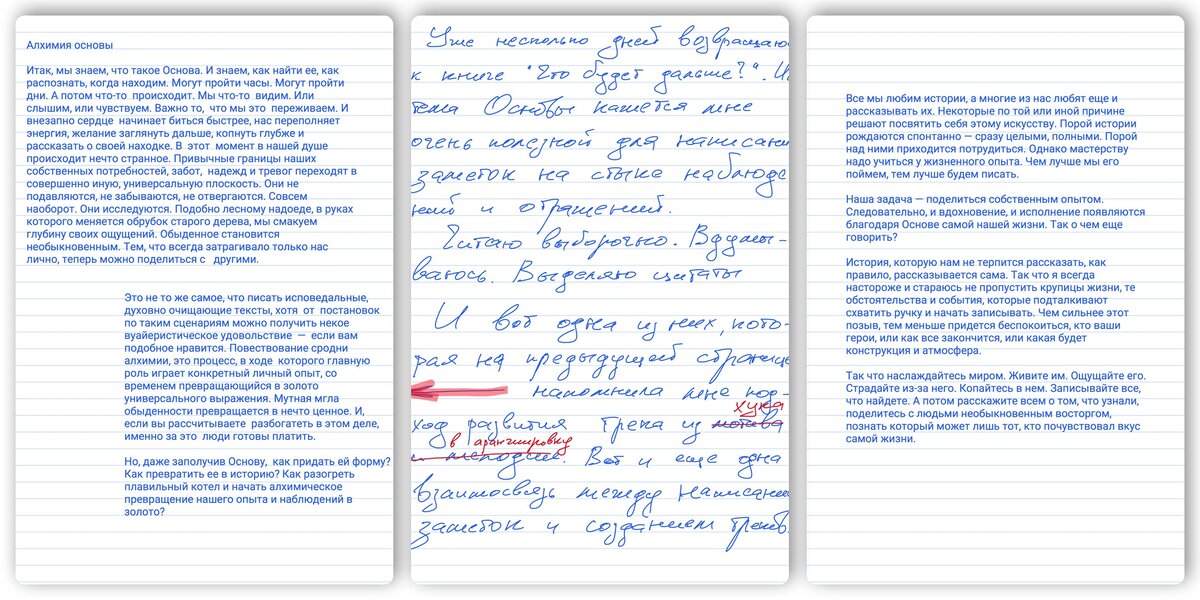 Алхимия основы
Итак, мы знаем, что такое Основа. И знаем, как найти ее, как
распознать, когда находим. Могут пройти часы. Могут пройти
дни. А потом что-то происходит. Мы что-то видим. Или
слышим, или чувствуем. Важно то, что мы это переживаем. И
внезапно сердце начинает биться быстрее, нас переполняет
энергия, желание заглянуть дальше, копнуть глубже и
рассказать о своей находке. В этот момент в нашей душе
происходит нечто странное. Привычные границы наших
собственных потребностей, забот, надежд и тревог переходят в
совершенно иную, универсальную плоскость. Они не
подавляются, не забываются, не отвергаются. Совсем
наоборот. Они исследуются. Подобно лесному надоеде, в руках
которого меняется обрубок старого дерева, мы смакуем
глубину своих ощущений. Обыденное становится
необыкновенным. Тем, что всегда затрагивало только нас
лично, теперь можно поделиться с другими.
Это не то же самое, что писать исповедальные,
духовно очищающие тексты, хотя от постановок
по таким сценариям можно получить некое
вуайеристическое удовольствие — если вам
подобное нравится. Повествование сродни
алхимии, это процесс, в ходе которого главную
роль играет конкретный личный опыт, со
временем превращающийся в золото
универсального выражения. Мутная мгла
обыденности превращается в нечто ценное. И,
если вы рассчитываете разбогатеть в этом деле,
именно за это люди готовы платить.
Но, даже заполучив Основу, как придать ей форму?
Как превратить ее в историю? Как разогреть
плавильный котел и начать алхимическое
превращение нашего опыта и наблюдений в
золото?
Уже несколько дней возвращаю
к книге "Что будет дальше?". И
тема Основы кажется мне
очень полезной для написани
заметок на стыке наблюде
ний и отражений.
Читаю выборочно. Вдумы-
ваюсь. Выделяю цитаты
И вот одна из них, кото-
рая на предыдущей странице
напомнила мне под-
хука
ход развития трека из мотива
в аранжировку
и мелодии. Вот и еще одна
взаимосвязь между написани
заметок и созданием треков.
Все мы любим истории, а многие из нас любят еще и
рассказывать их. Некоторые по той или иной причине
решают посвятить себя этому искусству. Порой истории
рождаются спонтанно — сразу целыми, полными. Порой
над ними приходится потрудиться. Однако мастерству
надо учиться у жизненного опыта. Чем лучше мы его
поймем, тем лучше будем писать.
Наша задача — поделиться собственным опытом.
Следовательно, и вдохновение, и исполнение появляются
благодаря Основе самой нашей жизни. Так о чем еще
говорить?
История, которую нам не терпится рассказать, как
правило, рассказывается сама. Так что я всегда
настороже и стараюсь не пропустить крупицы жизни, те
обстоятельства и события, которые подталкивают
схватить ручку и начать записывать. Чем сильнее этот
позыв, тем меньше придется беспокоиться, кто ваши
герои, или как все закончится, или какая будет
конструкция и атмосфера.
Так что наслаждайтесь миром. Живите им. Ощущайте его.
Страдайте из-за него. Копайтесь в нем. Записывайте все,
что найдете. А потом расскажите всем о том, что узнали,
поделитесь с людьми необыкновенным восторгом,
познать который может лишь тот, кто почувствовал вкус
самой жизни.